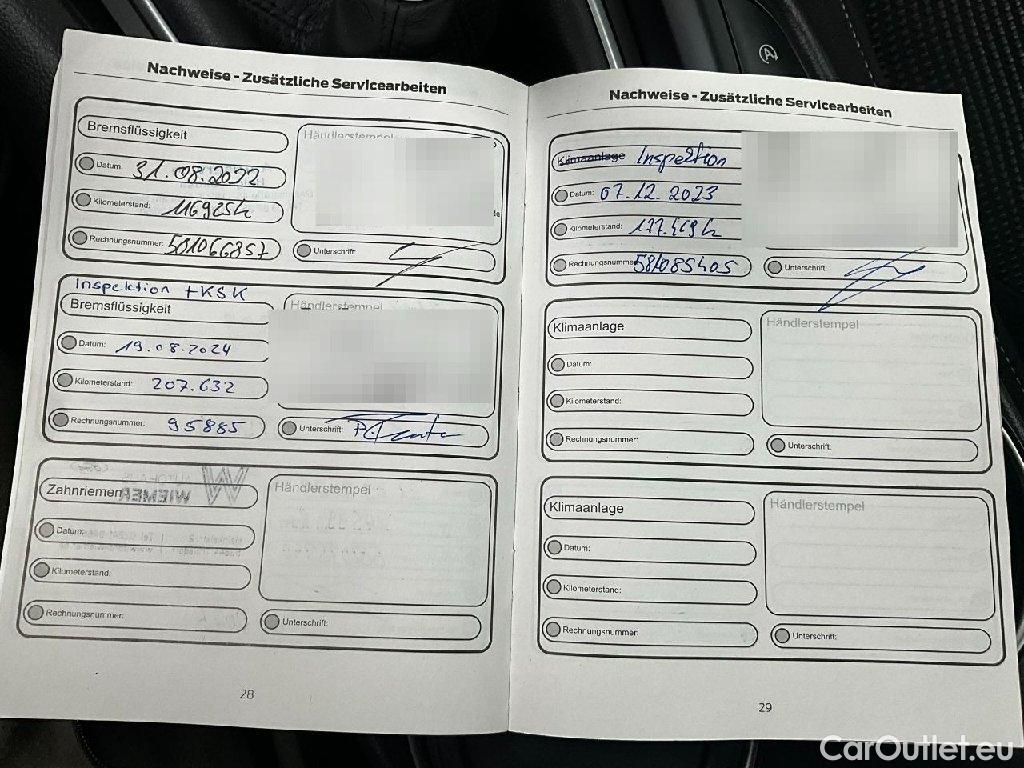 Nachweise - Zusätzliche Servicearbeiten
Bremsflüssigkeit
Händlerstempel
Datum: 31.08.2022
Kilometerstand: 116925k
Rechnungsnummer: 501066857
Unterschrift:
Inspektion + KSK
Bremsflüssigkeit
Händlerstempel
Datum: 19.08.2024
Kilometerstand: 207.632
Rechnungsnummer: 95885
Unterschrift:
Zahnriemen
WIEMER
Händlerstempel
Datum:
Kilometerstand:
Rechnungsnummer:
Unterschrift:
28
Nachweise - Zusätzliche Servicearbeiten
Klimaanlage Inspektion
Datum: 07.12.2023
Kilometerstand: 177.469k
Rechnungsnummer: 581085405
Unterschrift:
Klimaanlage
Händlerstempel
Datum:
Kilometerstand:
Rechnungsnummer:
Unterschrift:
Klimaanlage
Händlerstempel
Datum:
Kilometerstand:
Rechnungsnummer:
Unterschrift:
29
CarOutlet.eu